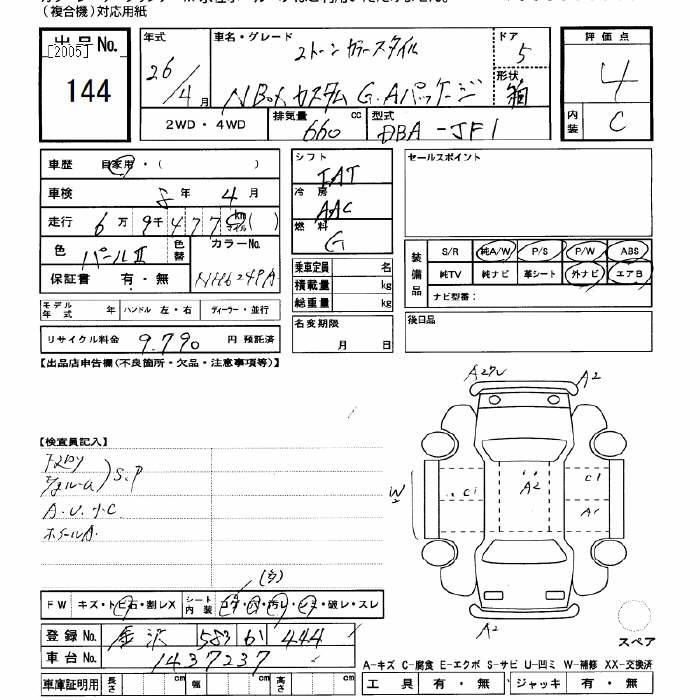 (複合機)対応用紙
出品No.
[2005]
144
年式
26/4月
車名・グレード
2トーンカラースタイル
N Box カスタム G.Aパッケージ
ドア
5
形状
箱
2WD・4WD
排気量
660 cc
型式
DBA-JF1
評価点
4
内装
C
車歴 自家用・( )
車検 年 4月
走行 6万9千477 km マイル ( )
色 パールII 色替 カラーNo.
NH624PA
保証書 有・無
モデル年式 年 ハンドル 左・右 ディーラー・並行
リサイクル料金 9.790 円 預託済
シフト
FAT
冷房
AAC
燃料
G
乗車定員 名
積載量 kg
総重量 kg
名変期限
月 日
セールスポイント
装備品
S/R 純A/W P/S P/W ABS
純TV 純ナビ 革シート 外ナビ エアB
ナビ型番:
後日品
【出品店申告欄(不良箇所・欠品・注意事項等)】
【検査員記入】
S.P
A.U.小C
ホイールA.
A2
W
C1
A2
C1
A1
A2
スペア
FW キズ・トビ石・割レX
シート内装 コゲ・穴・汚レ・シミ・破レ・スレ
登録No. 金沢 583 61 444
車台No. 1437237
車庫証明用 長さ cm 幅 cm 高さ cm
A-キズ C-腐食 E-エクボ S-サビ U-凹ミ W-補修 XX-交換済
工具 有・無 ジャッキ 有・無